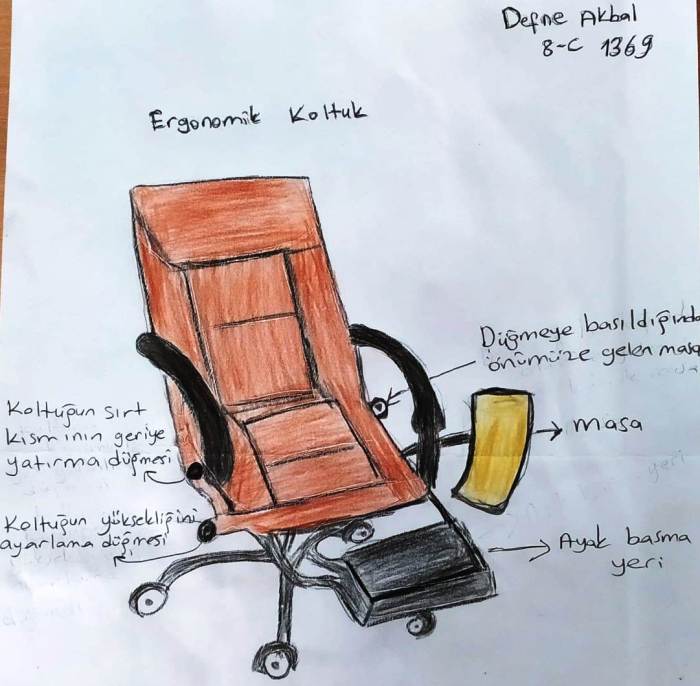 Defne Akbal
8-C 1369
Ergonomik Koltuk
Düğmeye basıldığında
önümüze gelen masa
Koltuğun sırt
kısmının geriye
yatırma düğmesi
masa
Koltuğun yüksekliğini
ayarlama düğmesi
Ayak basma
yeri